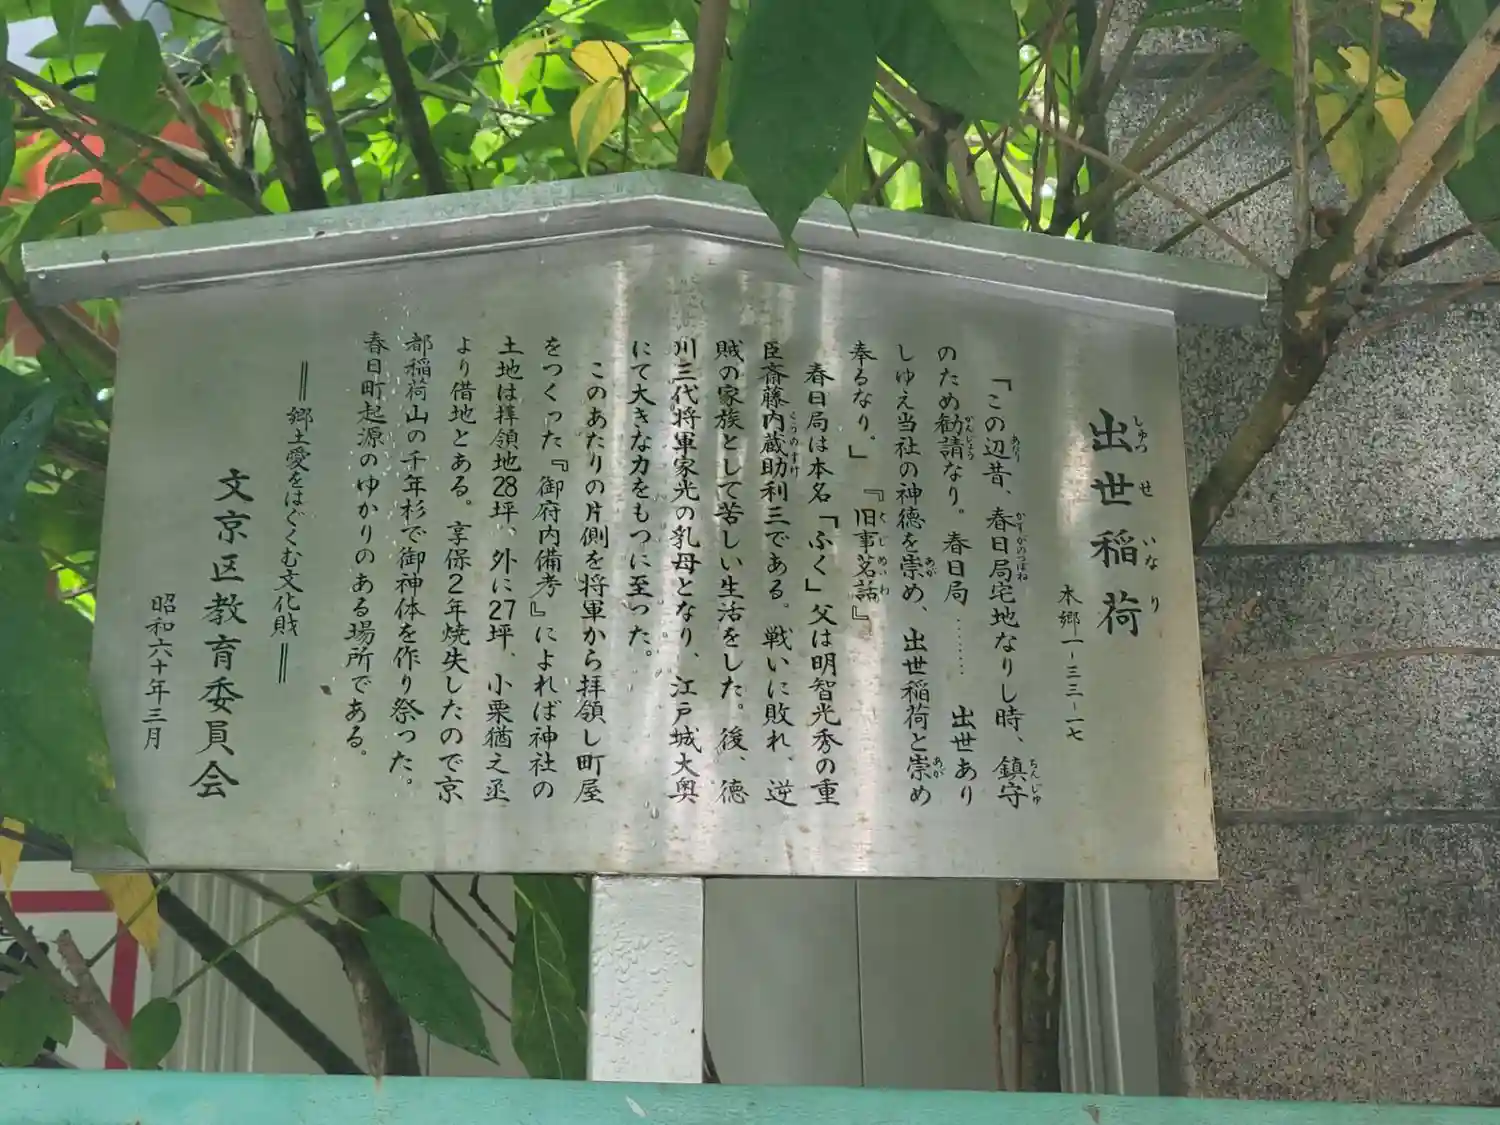 出世稲荷
しゅつ せ いなり
本郷一-三三-一七
「この辺昔、春日局宅地なりし時、鎮守
のため勧請なり。春日局………出世あり
しゆえ当社の神徳を崇め、出世稲荷と崇め
奉るなり。」 『旧事茗話』
春日局は本名「ふく」父は明智光秀の重
臣斎藤内蔵助利三である。戦いに敗れ、逆
賊の家族として苦しい生活をした。後、徳
川三代将軍家光の乳母となり、江戸城大奥
にて大きな力をもつに至った。
このあたりの片側を将軍から拝領し町屋
をつくった『御府内備考』によれば神社の
土地は拝領地28坪、外に27坪、小栗猶之丞
より借地とある。享保2年焼失したので京
都稲荷山の千年杉で御神体を作り祭った。
春日町起源のゆかりのある場所である。
＝郷土愛をはぐくむ文化財＝
文京区教育委員会
昭和六十年三月